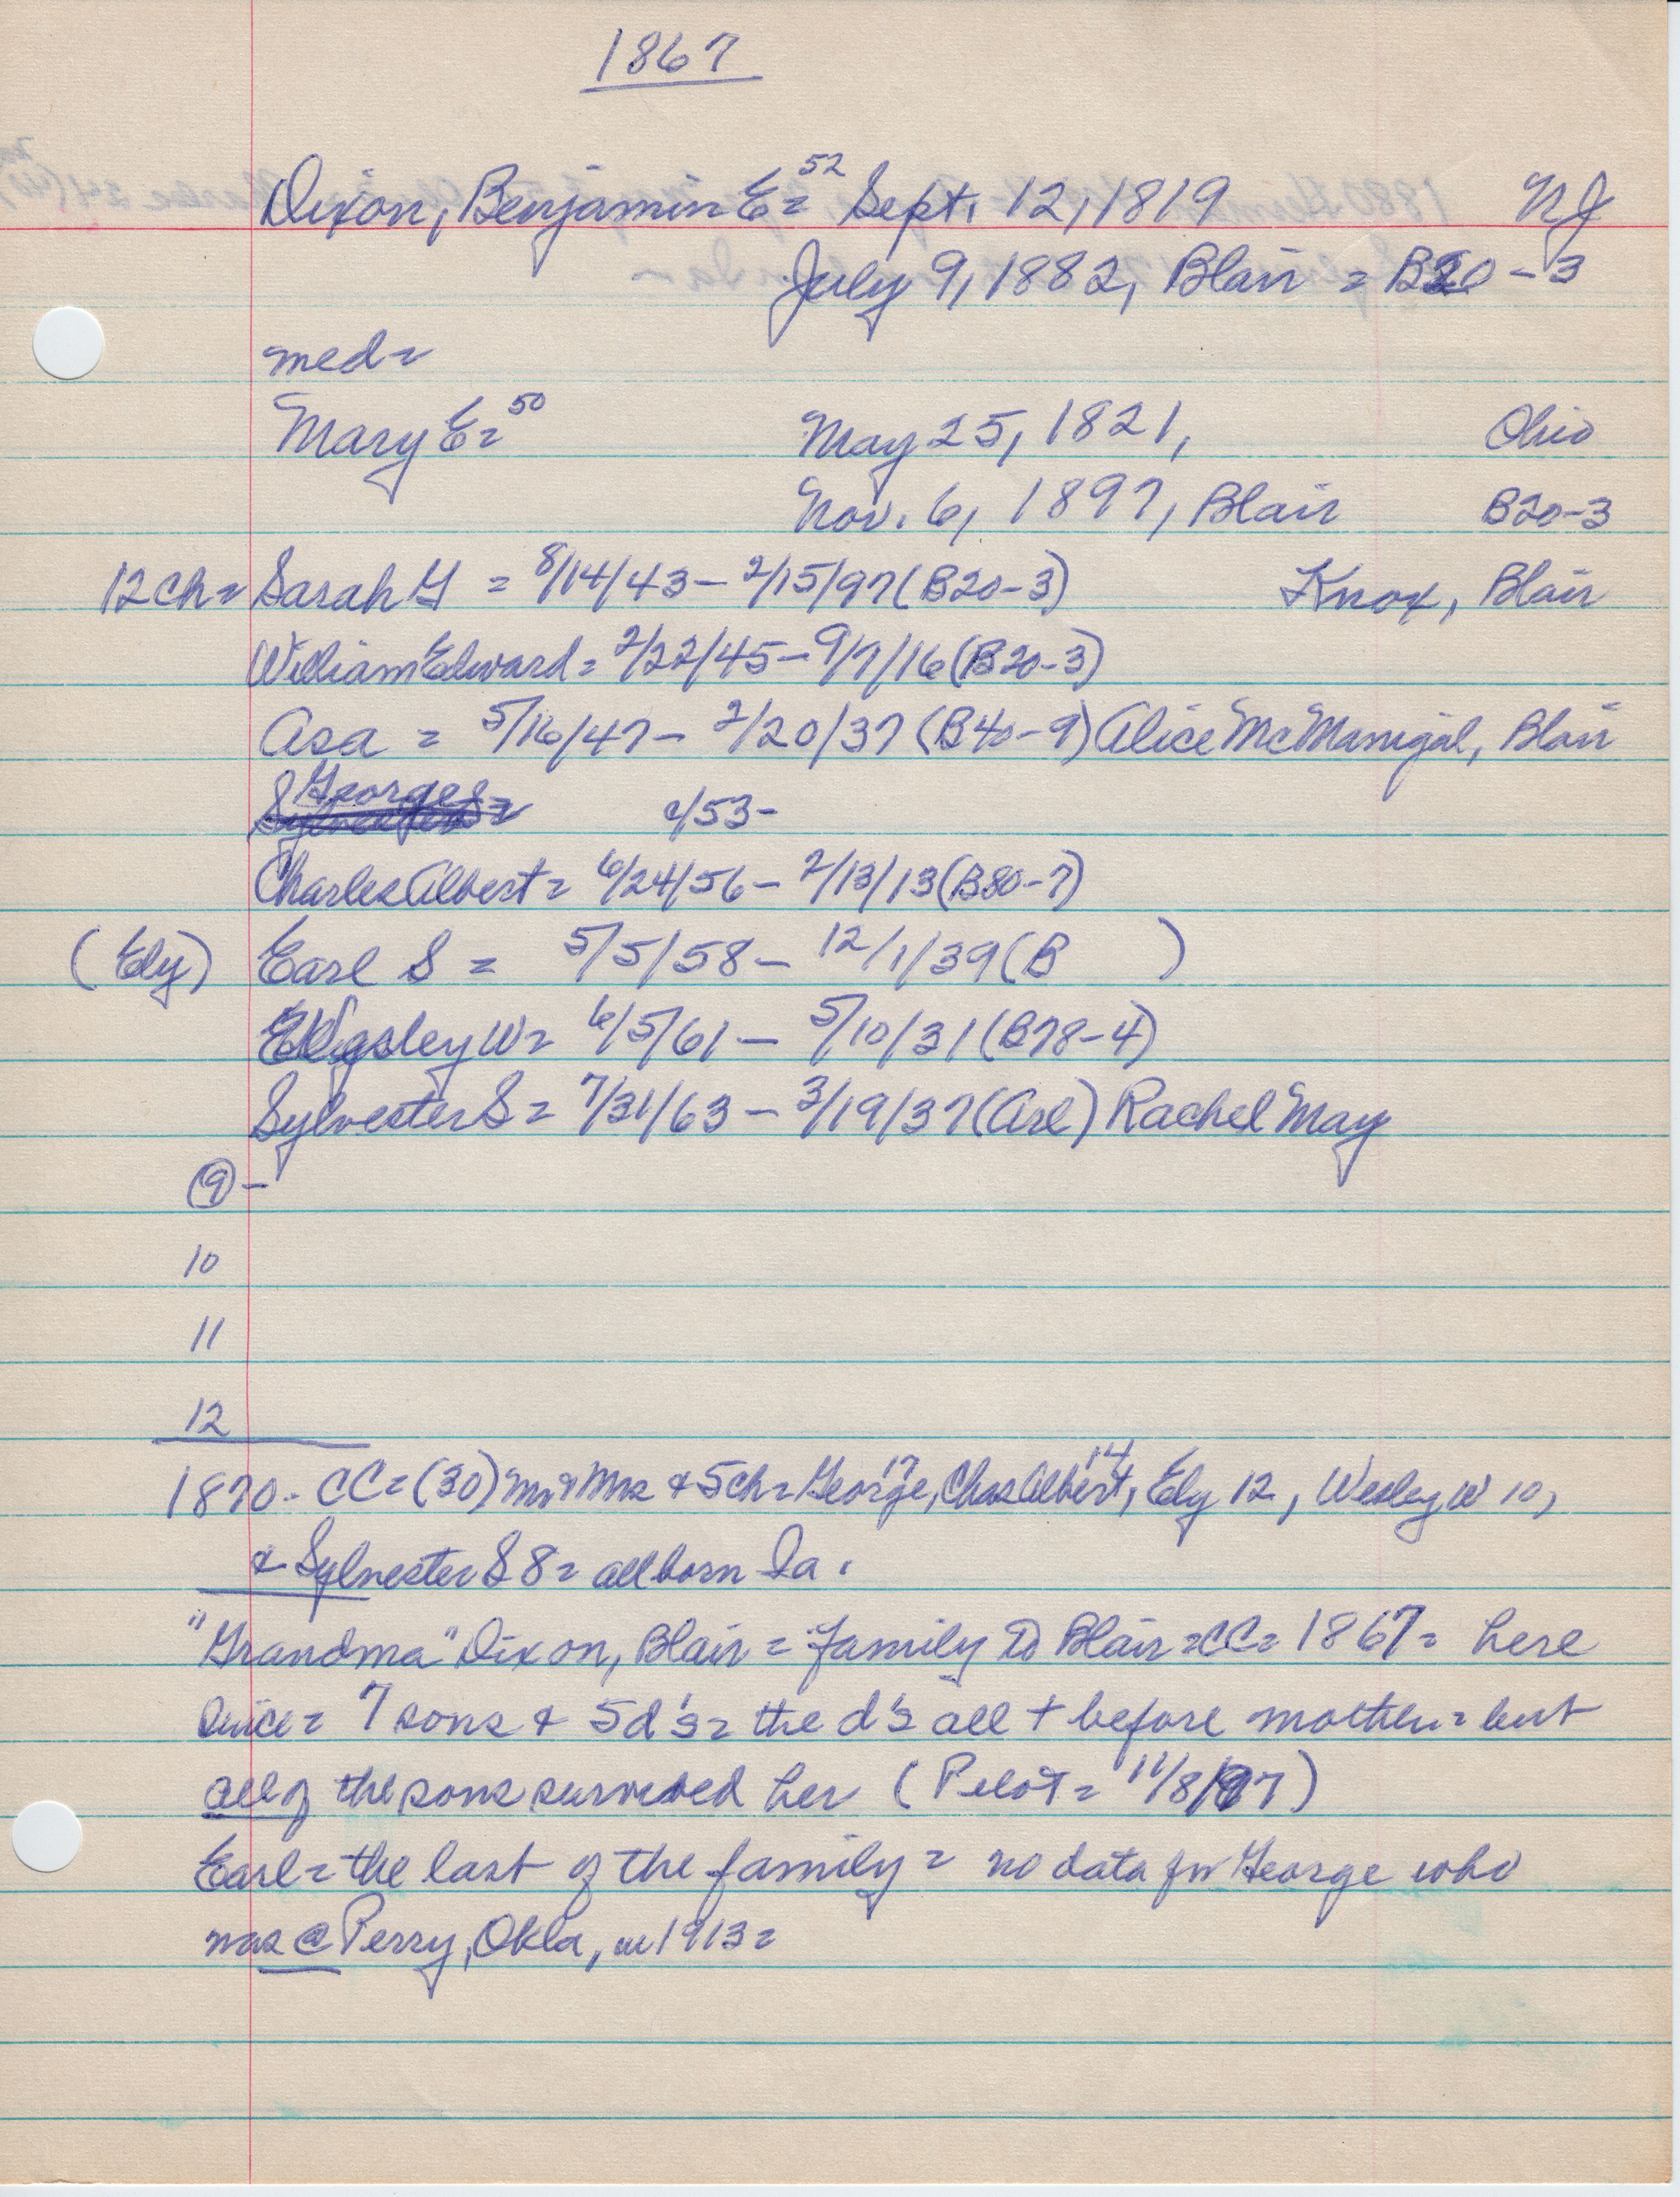 1867
Dixon, Benjamin E=52 Sept. 12, 1819 NJ
July 9, 1882, Blair = B20-3
med=
Mary E=50 May 25, 1821, Ohio
Nov. 6, 1897, Blair B20-3
12 ch= Sarah G = 8/14/43 - 2/15/97 (B20-3) Knox, Blair
William Edward = 2/22/45 - 9/7/16 (B20-3)
Asa = 5/16/47 - 2/20/37 (B40-9) Alice McManigal, Blair
George S= /53-
Charles Albert = 6/24/56 - 2/13/13 (B80-7)
(Ely) Earl S = 5/5/58 - 12/1/39 (B )
W= 6/5/61 - 5/10/31 (B78-4)
Sylvester S = 7/31/63 - 3/19/37 (Arl) Rachel May
9 -
10
11
12
1870 - CC = (30) Mr & Mrs & 5 ch = George 17, Chas Albert 14, Ely 12, Wesley W 10,
& Sylvester S 8 = all born Ia.
"Grandma" Dixon, Blair = family to Blair = CC = 1867 = here
since = 7 sons & 5 d's = the d's all + before mother = but
all of the sons survived her (Pilot = 11/8/97)
Earl = the last of the family = no data for George who
was @ Perry, Okla, in 1913 =